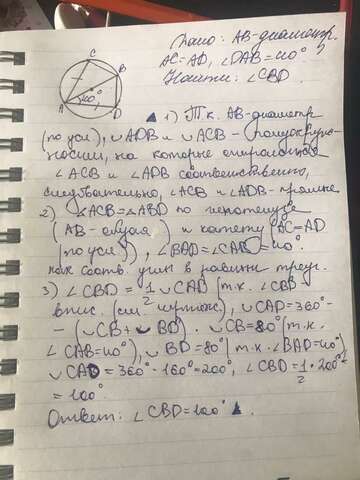 Дано: AB-диаметр.
AC=AD, ∠DAB=40°
Найти: ∠CBD.
C
B
A
40°
D
▲ 1) Т.к. AB-диаметр
(по усл), ∪ADB и ∪ACB - полуокруж-
ности, на которые опираются
∠ACB и ∠ADB соответственно,
следовательно, ∠ACB и ∠ADB-прямые
2) ∆ACB=∆ABD по гипотенузе
(AB-общая) и катету (AC=AD
(по усл)), ∠BAD=∠CAB=40°
как соотв. углы в равных треуг.
3) ∠CBD = 1/2 ∪CAD (т.к. ∠CBD
впис. (см. чертёж), ∪CAD=360°-
-(∪CB+∪BD). ∪CB=80° (т.к.
∠CAB=40°), ∪BD=80° (т.к. ∠BAD=40°)
∪CAD=360°-160°=200°, ∠CBD=1/2·200°=
=100°
Ответ: ∠CBD=100° ▲.